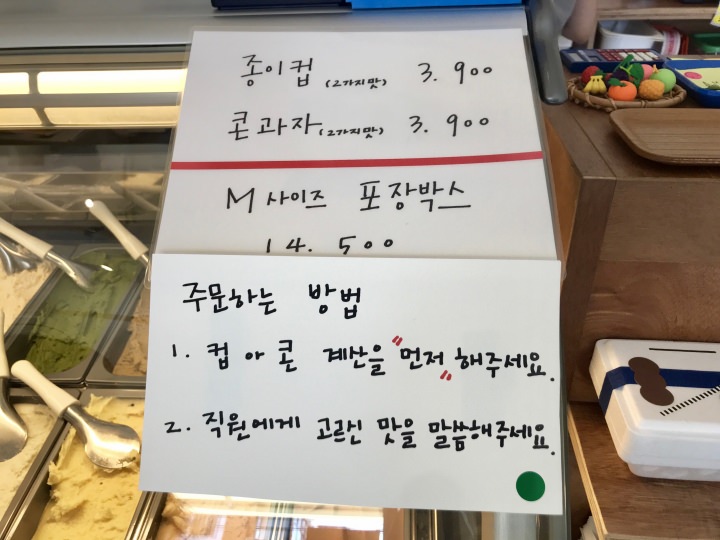 종이컵 (2가지맛) 3. 900
콘과자 (2가지맛) 3. 900
M 사이즈 포장박스
14. 500
주문하는 방법
1. 컵 아 콘 계산을 "먼저" 해주세요.
2. 직원에게 고르신 맛을 말씀해주세요.